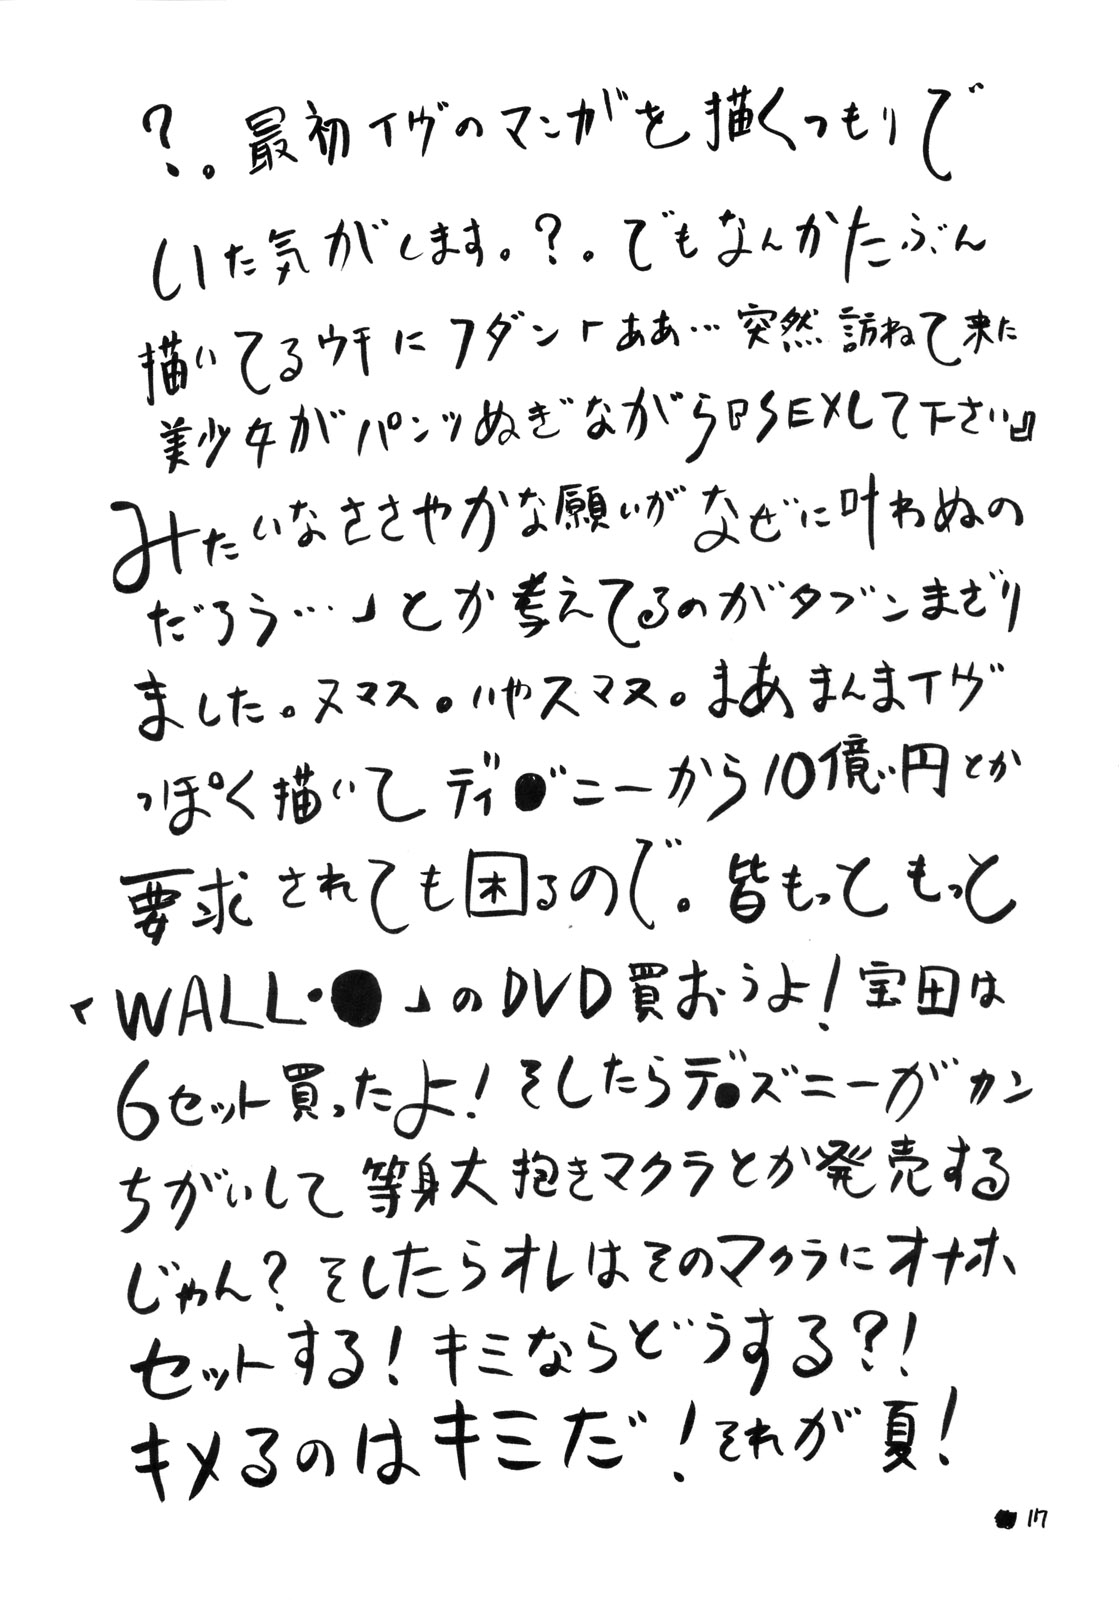 ？。最初イヴのマンガを描くつもりで
いた気がします。？。でもなんかたぶん
描いてるウチにフダン「ああ…突然訪ねて来た
美少女がパンツぬぎながら『SEXして下さい』
みたいなささやかな願いがなぜに叶わぬの
だろう…」とか考えてるのがタブンまざり
ました。ヌマス。いやスマヌ。まあまんまイヴ
っぽく描いてディ●゛ニーから10億円とか
要求されても困るので。皆もっともっと
「WALL・●」のDVD買おうよ！宝田は
6セット買ったよ！そしたらデ●ズニーがカン
ちがいして等身大抱きマクラとか発売する
じゃん？そしたらオレはそのマクラにオナホ
セットする！キミならどうする？！
キメるのはキミだ！それが夏！
17